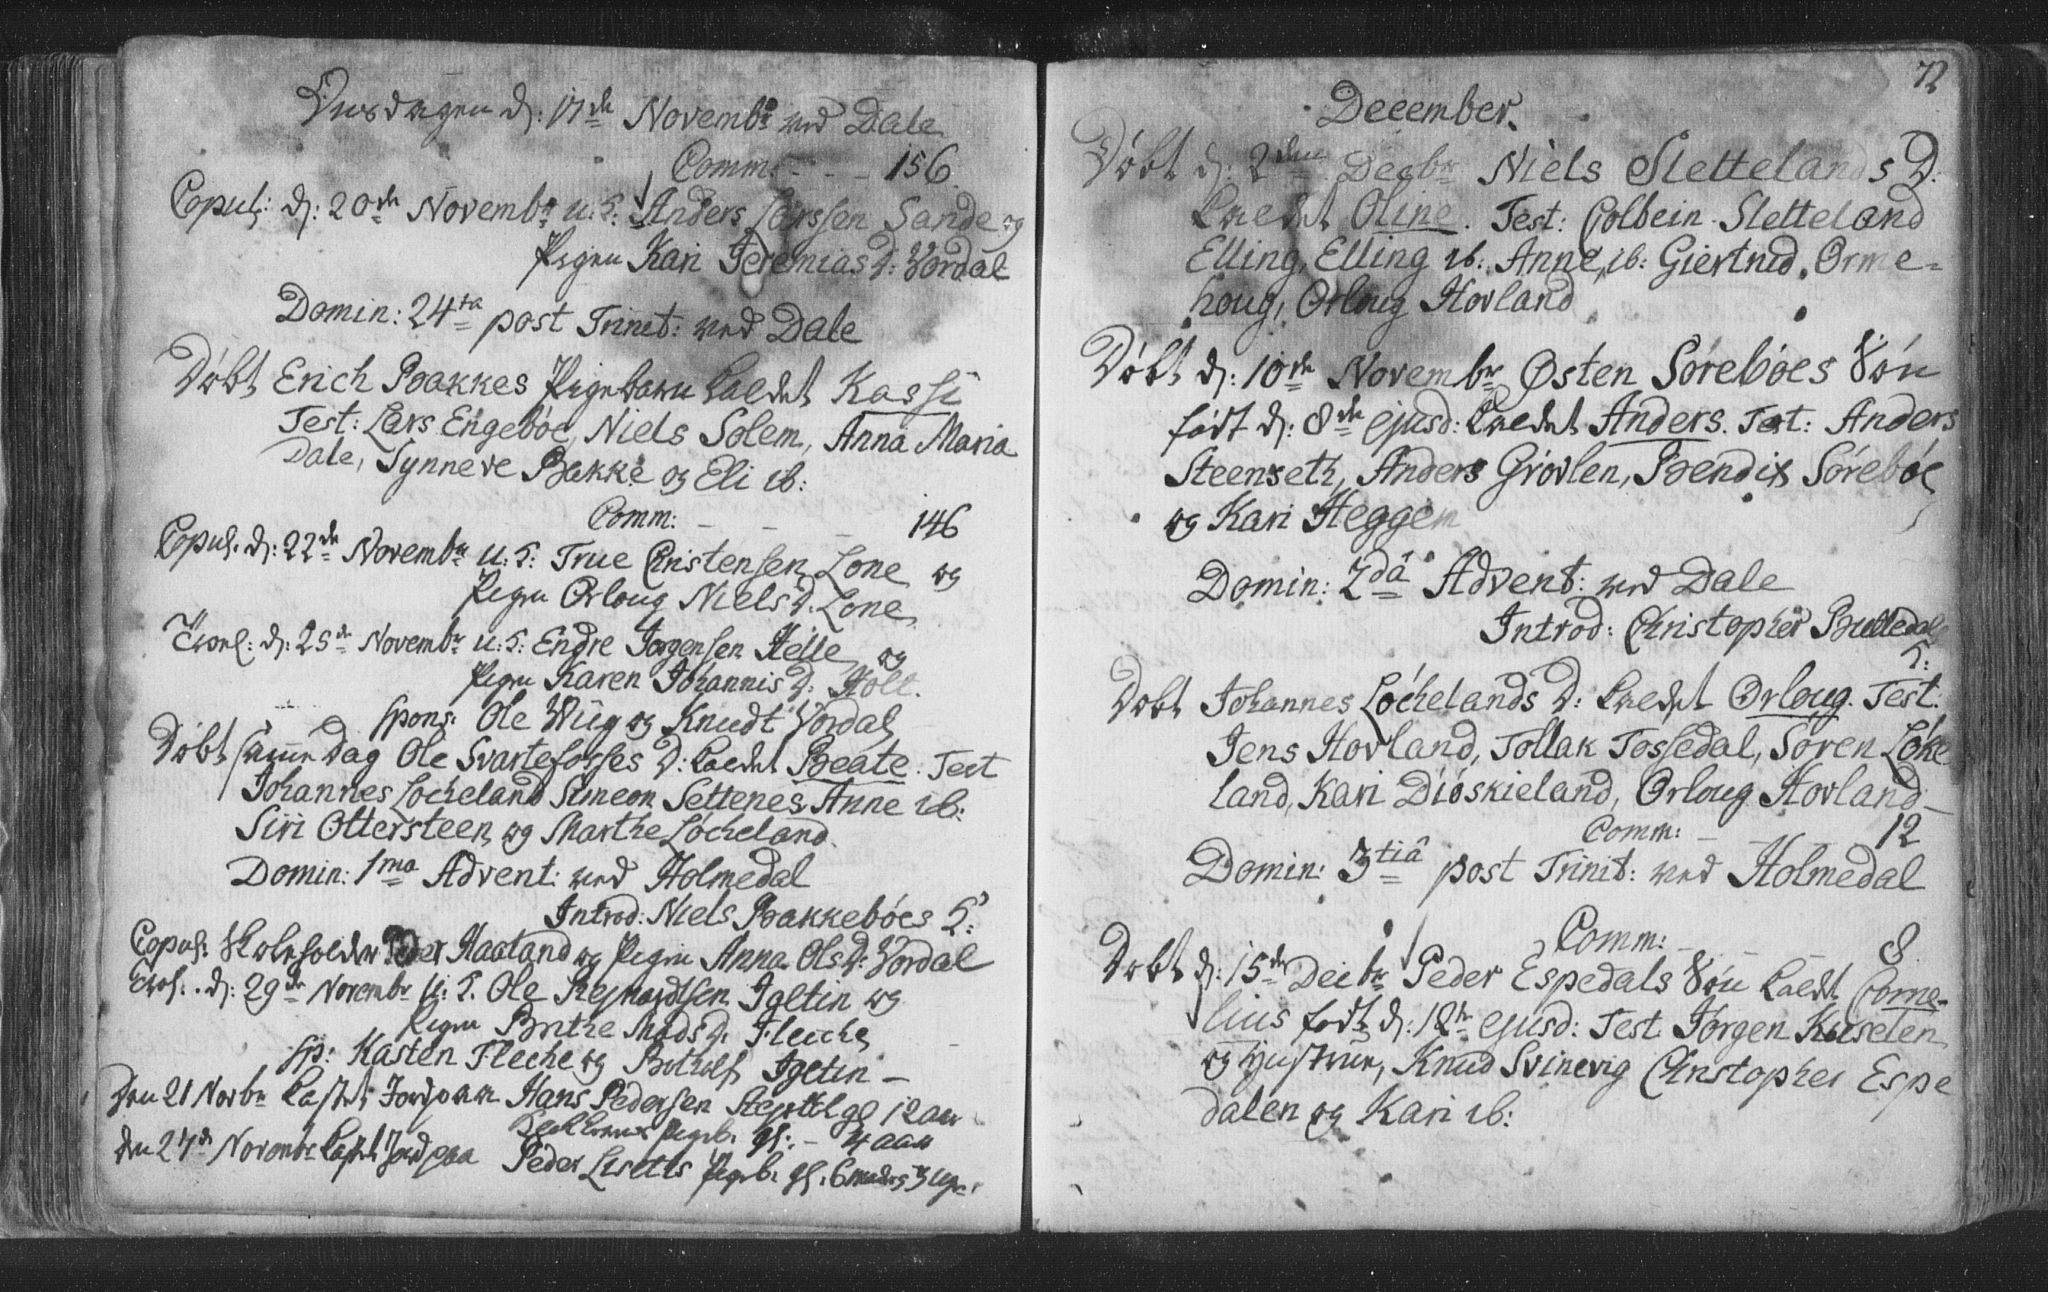 Onsdagen d: 17de Novembr ved Dale
Comm: - - - 156
Copul: d: 20de Novembr u: K: Anders Larssen Sande og
Pigen Kari Jeremias D: Vordal
Domin: 24ta post Trinit: ved Dale
Døbt Erich Bakkes Pigebarn kaldet Kassi
Test: Lars Engebøe, Niels Solem, Anna Maria
Dale, Synneve Bakke og Eli ib:
Comm: - - - 146
Copul. d: 22de Novembr u: K: True Christensen Lone og
Pigen Orloug Niels D. Lone
Trol: d: 25de Novembr u: K: Endre Jørgensen Helle og
Pigen Karen Johannis D: Holt.
spons: Ole Wiig og Knudt Vordal
Døbt samme Dag Ole Svartefosses D: kaldet Beate. Test
Johannes Løcheland Simeon Settenes, Anne ib:
Siri Ottersteen og Marthe Løcheland.
Domin: 1ma Advent: ved Holmedal
Introd: Niels Bakkebøes K:
Copul: Skoleholder Peder Haaland og Pigen Anna Ols D: Vordal
Trol: d: 29de Novembr u: K. Ole Igetin og
Pigen Brithe Mads D: Fleche
sp: Kasten Fleche og Botholf Igetin -
Den 21 Novbr kastet Jord paa Hans Pedersen gl 12 aar
Pigeb: gl: - 4 aar
den 27de Novembr kastet Jord paa Peder Pigeb: gl: 6
72
December.
Døbt d: 2den Decbr Niels Slettelands D:
kaldet Oline. Test: Colbein Sletteland
Elling, Elling ib: Anne, ib: Giertrud Orme-
houg, Orloug Hovland
Døbt d: 10de Novembr Østen Sørebøes Søn
født d: 8de ejusd: kaldet Anders. Test: Anders
Steenseth, Anders Grøvlen, Bendix Sørebøe
og Kari Heggem
Domin: 2dâ Advent: ved Dale
Introd: Christopher Bulledals
K:
Døbt Johannes Løchelands D: kaldet Orloug. Test:
Jens Hovland, Tollak Tossedal, Søren Løke
land, Kari Diøskieland, Orloug Hovland
Comm: - - 12
Domin: 3tiâ post Trinit: ved Holmedal
Comm: - - 8
Døbt d: 15de Decbr Peder Espedals Søn kaldt Corne-
lius født d: 12te ejusd: Test Jørgen
og Hustrue, Knud Svinevig Christopher Espe
dalen og Kari ib: